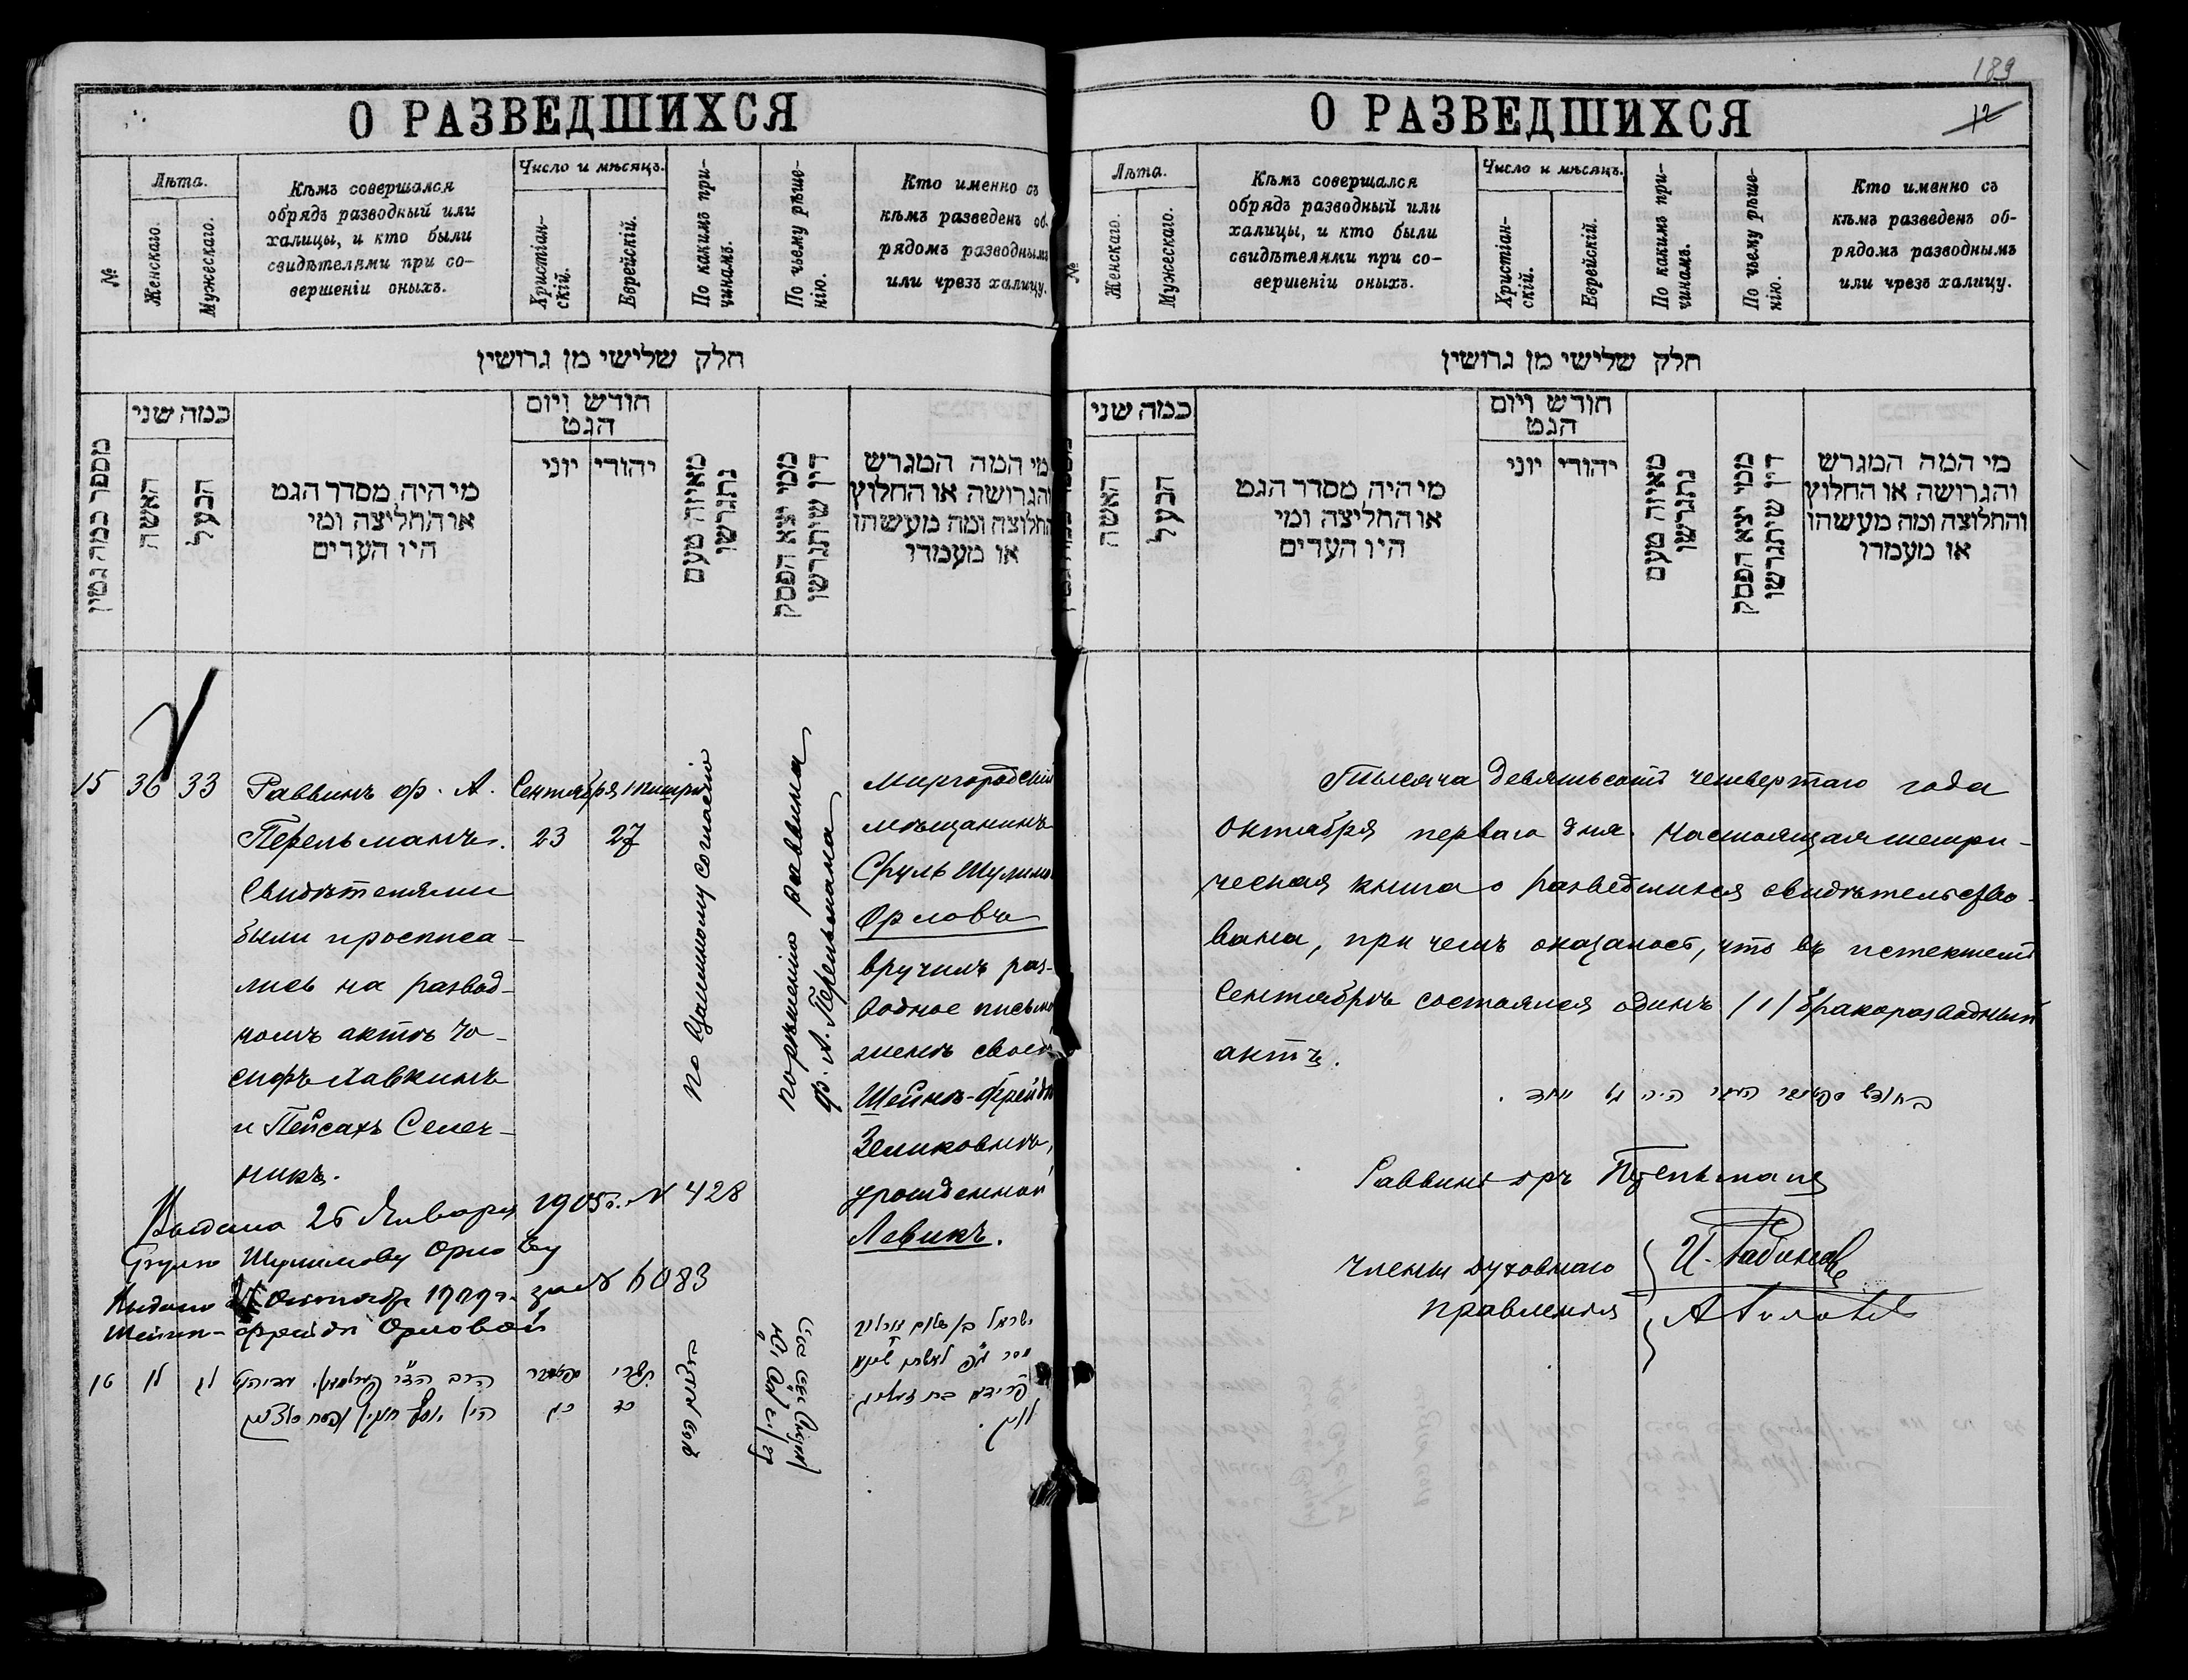 О РАЗВЕДШИХСЯ
№
Лѣта.
Женскаго.
Мужескаго.
Кѣмъ совершался
обрядъ разводный или
халицы, и кто были
свидѣтелями при со-
вершеніи оныхъ.
Число и мѣсяцъ.
Христіан-
скій.
Еврейскій.
По какимъ при-
чинамъ.
По чьему рѣше-
нію.
Кто именно съ
кѣмъ разведенъ об-
рядомъ разводнымъ
или чрезъ халицу.
חלק שלישי מן גרושין
מספר כמה גטין
כמה שני
האשה
הבעל
מי היה מסדר הגט
או החליצה ומי
היו העדים
חודש ויום
הגט
יהודי
יוני
מאיזה טעם
נתגרשו
ממי יצא הפסק
דין שיתגרשו
מי המה המגרש
והגרושה או החלוץ
והחלוצה ומה מעשהו
או מעמדו
15 36 33
Раввинъ ф. А.
Перельманъ.
Свидѣтелями
были и росписа-
лись на развод-
номъ актѣ Іо-
сифъ Хавкинъ
и Пейсахъ Селеч-
никъ.
Сентября Тишри
23 27
По взаимному согласію
По рѣшенію раввина
ф. А. Перельмана
Миргородскій
мѣщанинъ
Сруль Шулимо
Орловъ
вручилъ раз-
водное письмо
женѣ своей
Шейнѣ-Фрейдѣ
Зеликовнѣ,
урожденной
Левикъ.
Выдана 25 Января 1905 г. № 428
Срулю Шулимову Орлову
Выдано 21 Октября 1909 г. за № 6083
Шейнѣ-Фрейдѣ Орловой
16 לו לג
תשרי
כג
О РАЗВЕДШИХСЯ
189
12
№
Лѣта.
Женскаго.
Мужескаго.
Кѣмъ совершался
обрядъ разводный или
халицы, и кто были
свидѣтелями при со-
вершеніи оныхъ.
Число и мѣсяцъ.
Христіан-
скій.
Еврейскій.
По какимъ при-
чинамъ.
По чьему рѣше-
нію.
Кто именно съ
кѣмъ разведенъ об-
рядомъ разводнымъ
или чрезъ халицу.
חלק שלישי מן גרושין
כמה שני
האשה
הבעל
מי היה מסדר הגט
או החליצה ומי
היו העדים
חודש ויום
הגט
יהודי
יוני
מאיזה טעם
נתגרשו
ממי יצא הפסק
דין שיתגרשו
מי המה המגרש
והגרושה או החלוץ
והחלוצה ומה מעשהו
או מעמדו
Тысяча девятьсотъ четвертаго года
Октября перваго дня. Настоящая метри-
ческая книга о разведшихся свидѣтельство-
вана, при чемъ оказалось, что въ истекшемъ
Сентябрѣ состоялся одинъ /1/ бракоразводный
актъ.
Раввинъ Перельманъ
Члены духовнаго
правленія